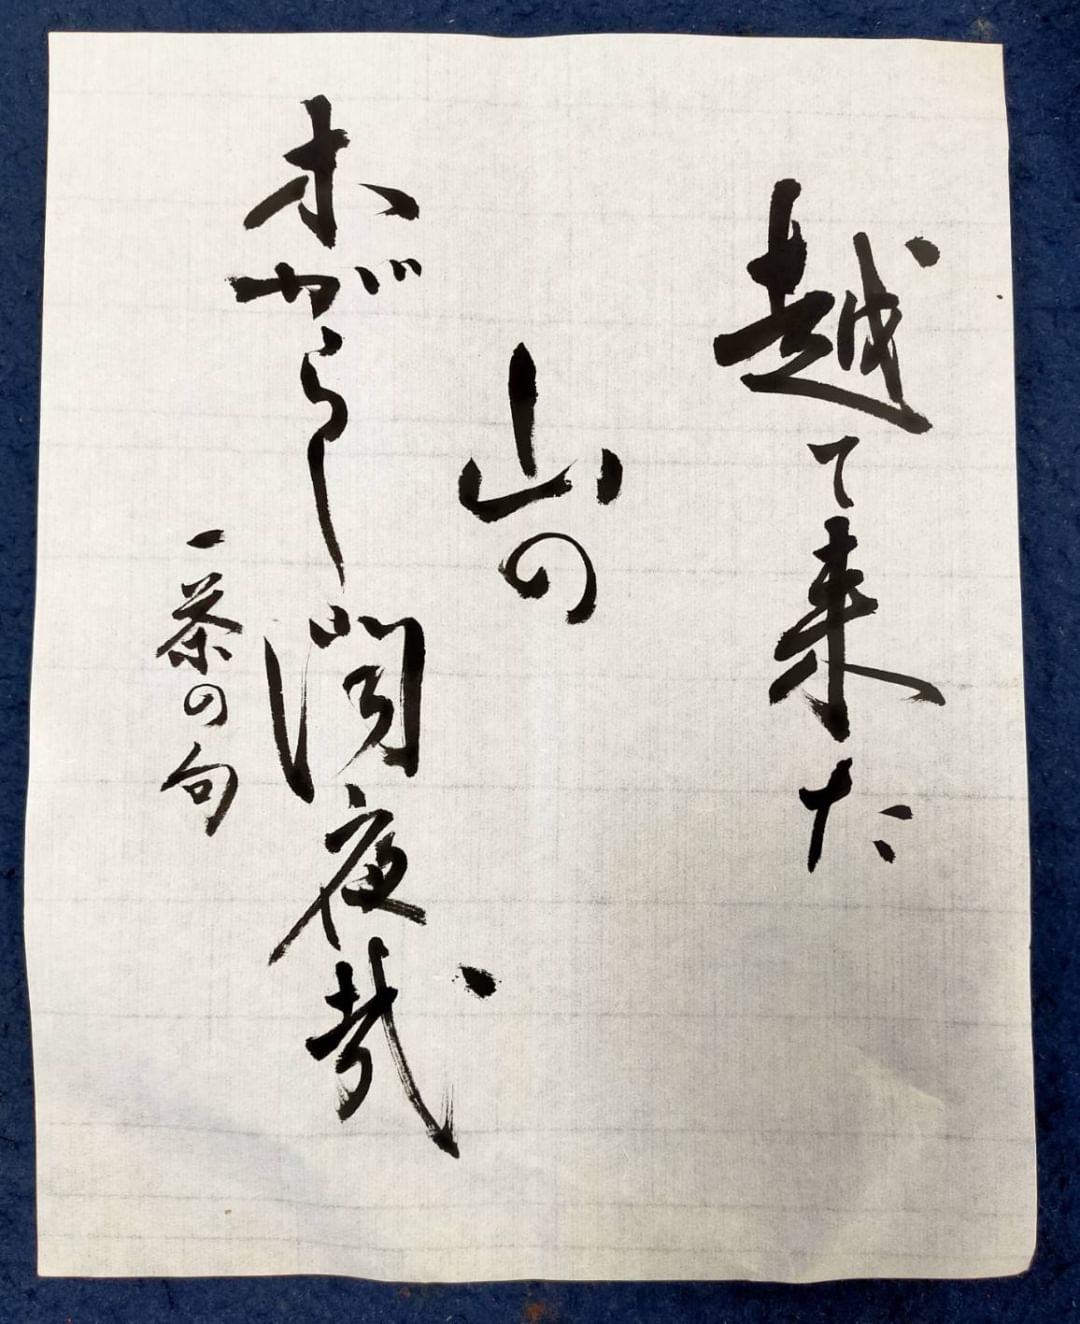 越て来た
山の
木がらし聞夜哉
一茶の句